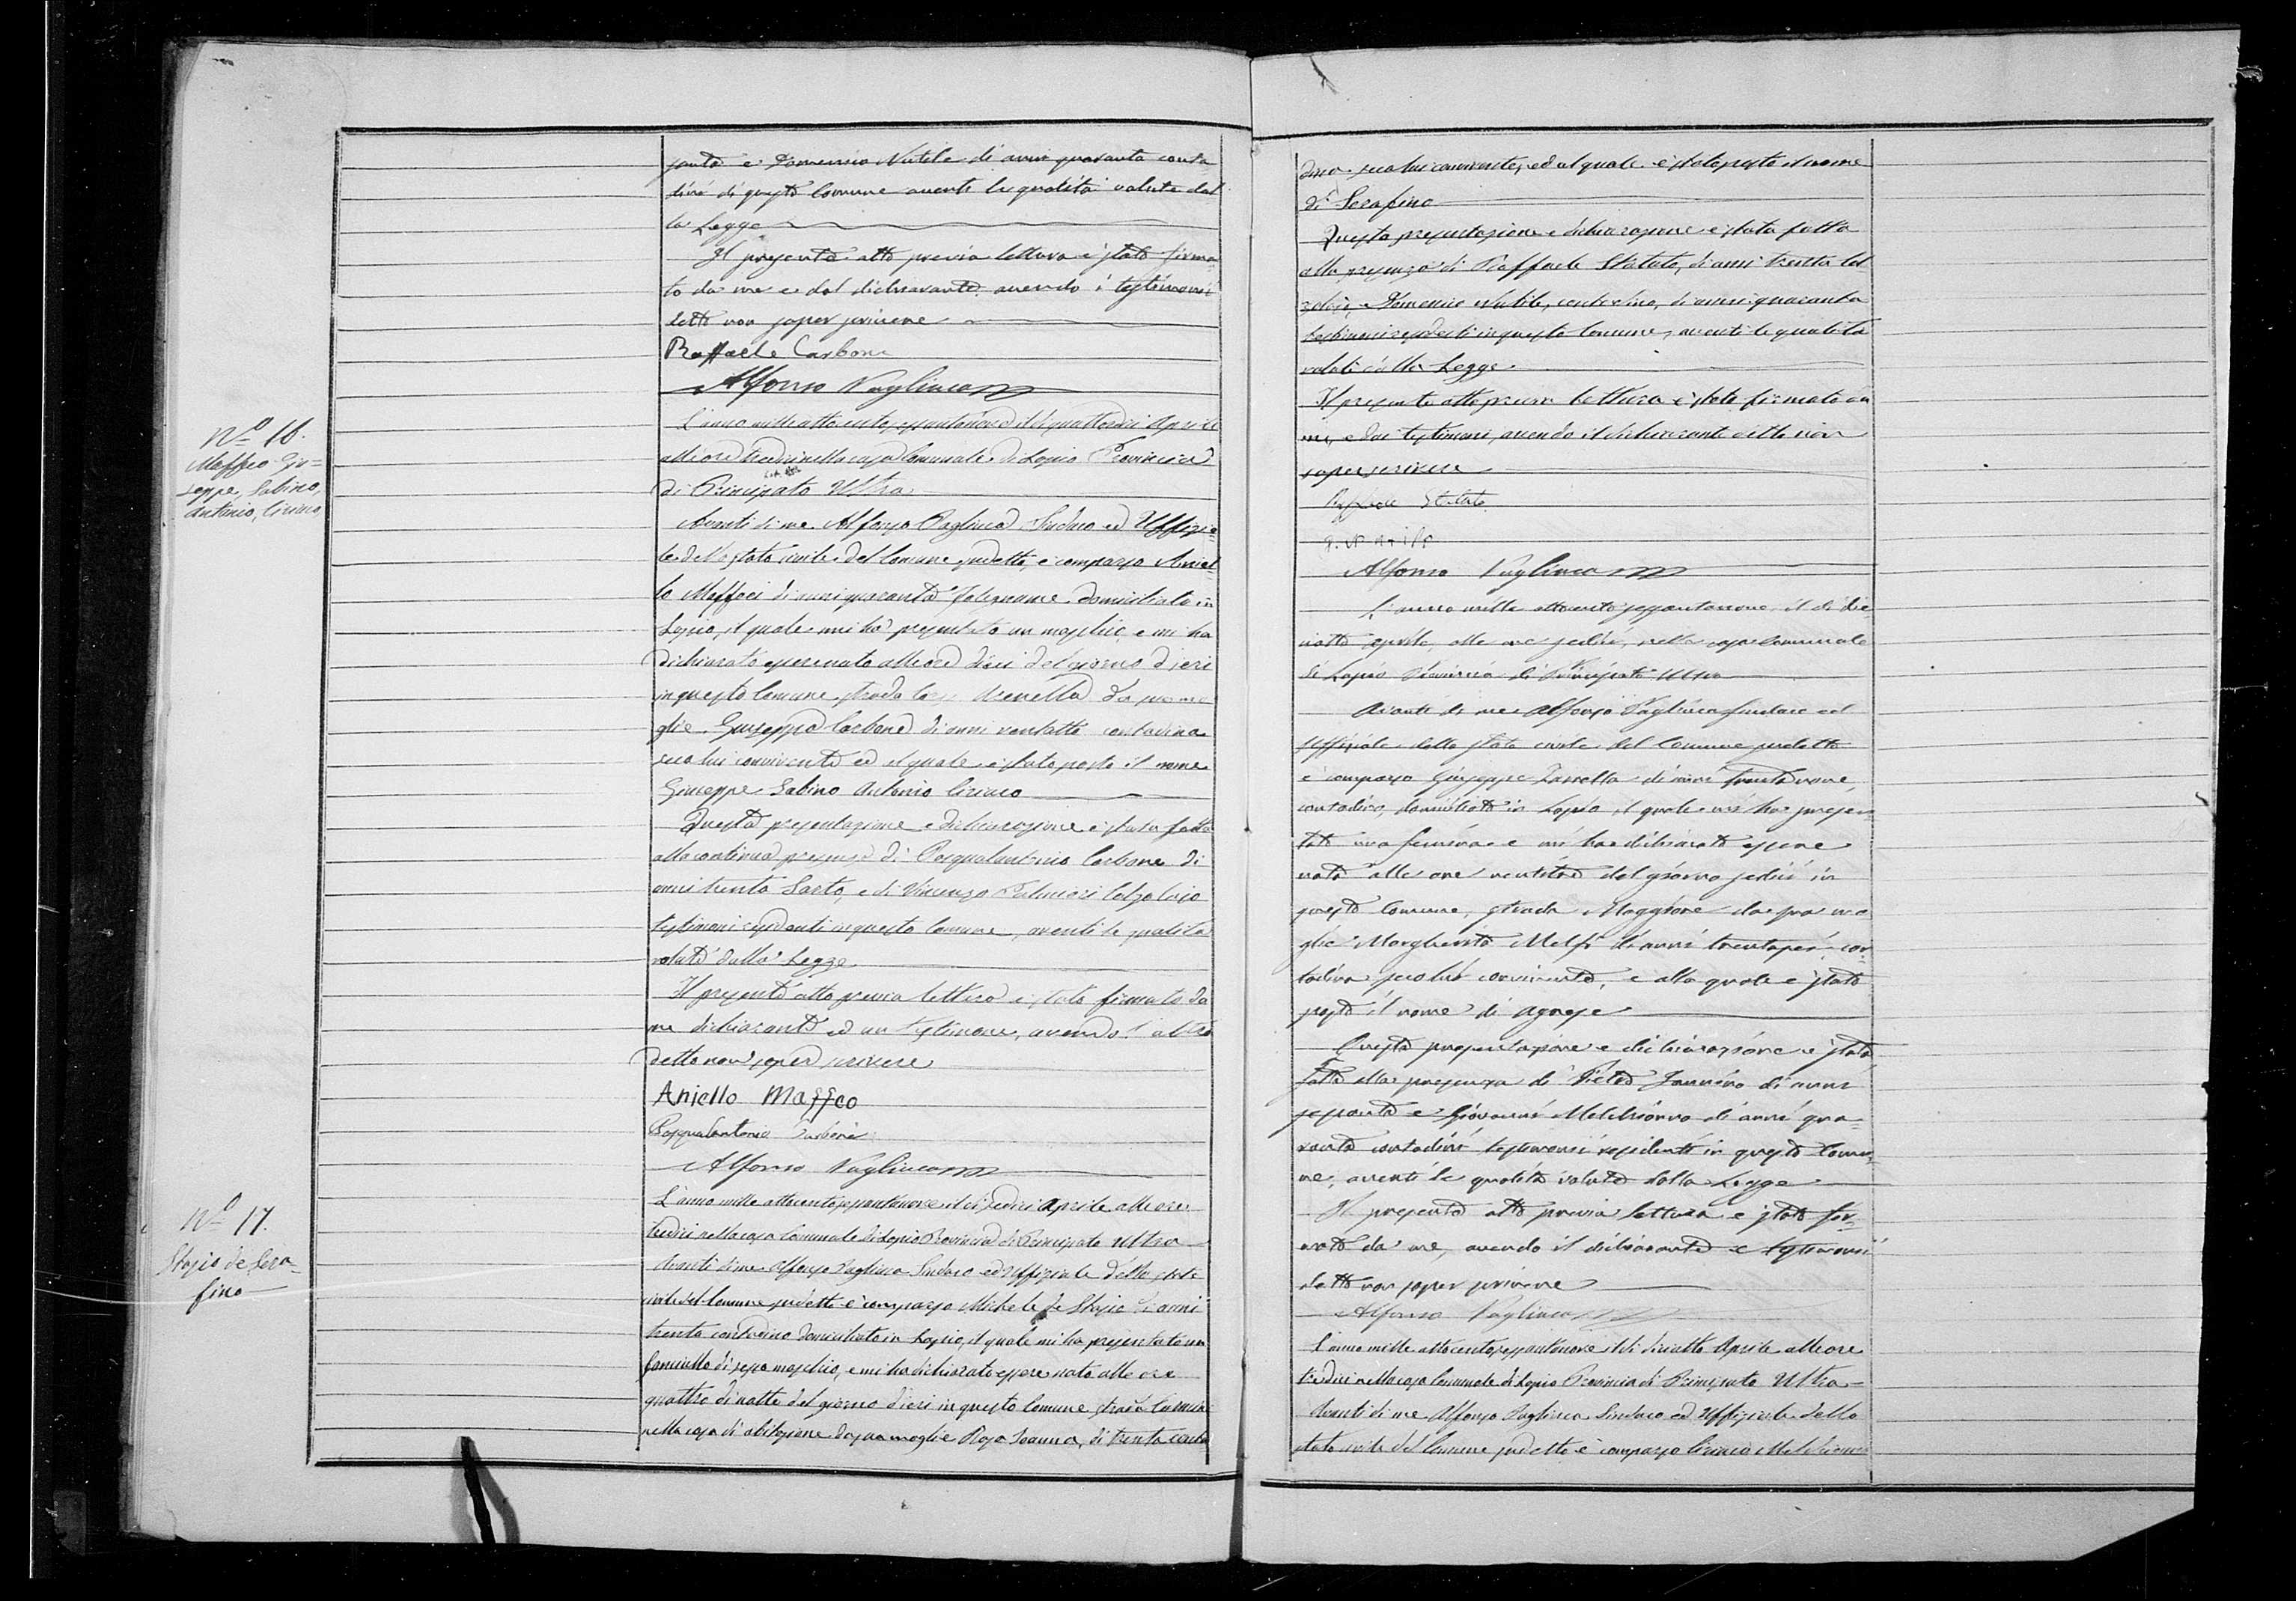 santa e Domenico Nutile di anni quaranta conta
dini di questo Comune aventi le qualità volute dal
la Legge
Il presente atto previa lettura è stato firma
to da me e dal dichiarante avendo i testimoni
detto non saper scrivere
Raffaele Carbone
Alfonso Pagliuca
No 16.
Maffeo Giu=
seppe, Sabino,
Antonio, Ciriaco
L'anno mille ottocento settantanove il dì quattordici Aprile
alle ore tredici nella casa Comunale di Lapio Provincia
di Principato Ultra
Avanti di me Alfonso Pagliuca Sindaco ed Uffizia
le dello stato civile del Comune sudetto, è comparso Aniel
lo Maffeo di anni quaranta Falegname domiciliato in
Lapio, il quale mi ha presentato un maschio e mi ha
dichiarato essere nato alle ore dieci del giorno d'ieri
in questo Comune, strada Arenella da sua mo
glie Giuseppa Carbone di anni ventotto contadina
seco lui convivente ed al quale è stato posto il nome
Giuseppe Sabino Antonio Ciriaco
Questa presentazione e dichiarazione è stata fatta
alla continua presenza di Pasqualantonio Carbone di
anni trenta Sarto, e di Vincenzo Calzolaio
testimoni residenti in questo Comune, aventi le qualità
volute dalla Legge
Il presente atto previa lettura è stato firmato da
me dichiarante ed un testimone, avendo l'altro
detto non saper scrivere
Aniello Maffeo
Pasqualantonio Carbone
Alfonso Pagliuca
No 17.
Stasio de Sera=
fino
L'anno mille ottocento settantanove il dì sedici Aprile alle ore
tredici nella casa Comunale di Lapio Provincia di Principato Ultra
Avanti di me Alfonso Pagliuca Sindaco ed Uffiziale dello stato
civile del Comune sudetto è comparso Michele de Stasio di anni
trenta contadino domiciliato in Lapio, il quale mi ha presentato un
fanciullo di sesso maschio, e mi ha dichiarato essere nato alle ore
quattro di notte del giorno d'ieri in questo Comune strada
nella casa di abitazione da sua moglie Rosa Ioanna, di trenta conta
dina seco lui convivente, ed al quale è stato posto il nome
di Serafino
Questa presentazione e dichiarazione è stata fatta
alla presenza di Raffaele Statuto, di anni trenta cal
zolaio, e Domenico Nutile, contadino, di anni quaranta
testimoni residenti in questo Comune, aventi le qualità
volute dalla Legge.
Il presente atto previa lettura è stato firmato da
me, e dai testimoni, avendo il dichiarante detto non
saper scrivere
Raffaele Statuto
Alfonso Pagliuca
L'anno mille ottocento settantanove il dì die
ciotto aprile, alle ore sedici, nella casa Comunale
di Lapio Provincia di Principato Ultra
Avanti di me Alfonso Pagliuca Sindaco ed
Uffiziale dello stato civile del Comune sudetto
è comparso Giuseppe Zarrella di anni trentanove,
contadino, domiciliato in Lapio il quale mi ha presen
tato una femina e mi ha dichiarato essere
nata alle ore ventitre del giorno sedici in
questo Comune, strada Maggiore da sua mo
glie Margherita Melfi di anni trentasei, con
tadina seco lui convivente, e alla quale è stato
posto il nome di Agnese
Questa presentazione e dichiarazione è stata
fatta alla presenza di di anni
sessanta e Giovanni Melchionna di anni qua
ranta contadini testimoni residenti in questo Comu
ne, aventi le qualità volute dalla Legge
Il presente atto previa lettura è stato fir
mato da me, avendo il dichiarante e testimoni
detto non saper scrivere
Alfonso Pagliuca
L'anno mille ottocento settantanove il dì diciotto Aprile alle ore
tredici nella casa Comunale di Lapio Provincia di Principato Ultra
Avanti di me Alfonso Pagliuca Sindaco ed Uffiziale dello
stato civile del Comune sudetto è comparso Ciriaco Melchionna